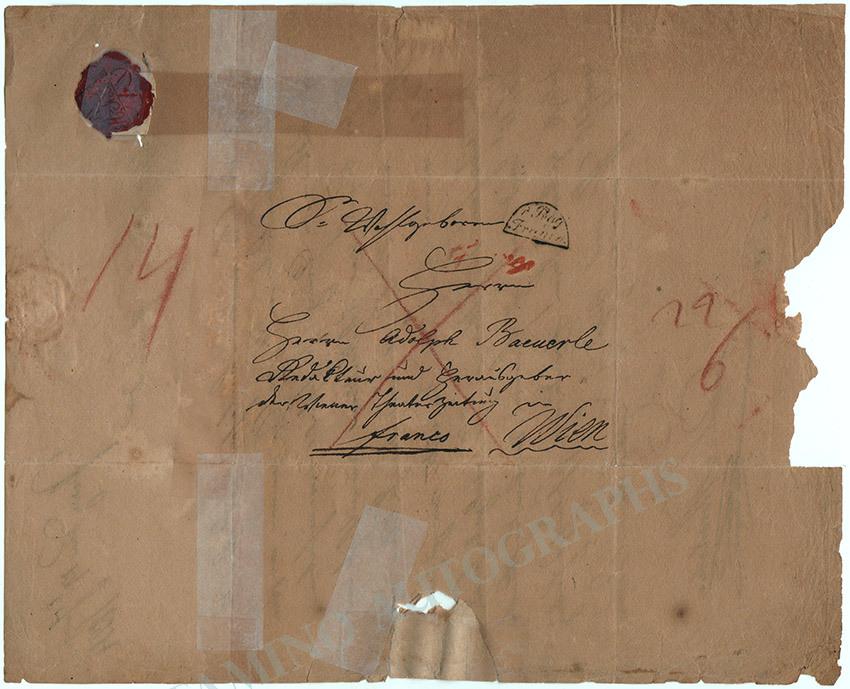 Sr Wohlgeboren
Herrn
Herrn Adolph Baeuerle
Redakteur und Herausgeber
der Wiener Theaterzeitung in
Franco Wien
14
29
6
TAMINO AUTOGRAPHS